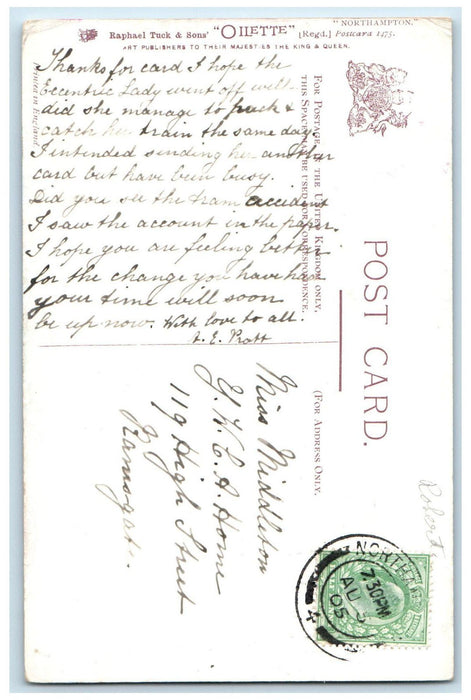 "NORTHAMPTON."
Raphael Tuck & Sons' "OILETTE" [Regd.] Postcard 1475.
ART PUBLISHERS TO THEIR MAJESTIES THE KING & QUEEN.
Printed in England
Thanks for card I hope the
Eccentric Lady went off well
did she manage to pack &
catch her train the same day
I intended sending her another
card but have been busy.
Did you see the tram accident
I saw the account in the paper.
I hope you are feeling better
for the change you have had
your time will soon
be up now. With love to all.
A. E. Pratt
FOR POSTAGE IN THE UNITED KINGDOM ONLY,
THIS SPACE MAY BE USED FOR CORRESPONDENCE.
POST CARD.
(FOR ADDRESS ONLY.)
Miss Middleton
Y.W.C.A Home
119 High Street
Ramsgate.
Robert
NORTHAMPTON
7.30PM
AU
05
4